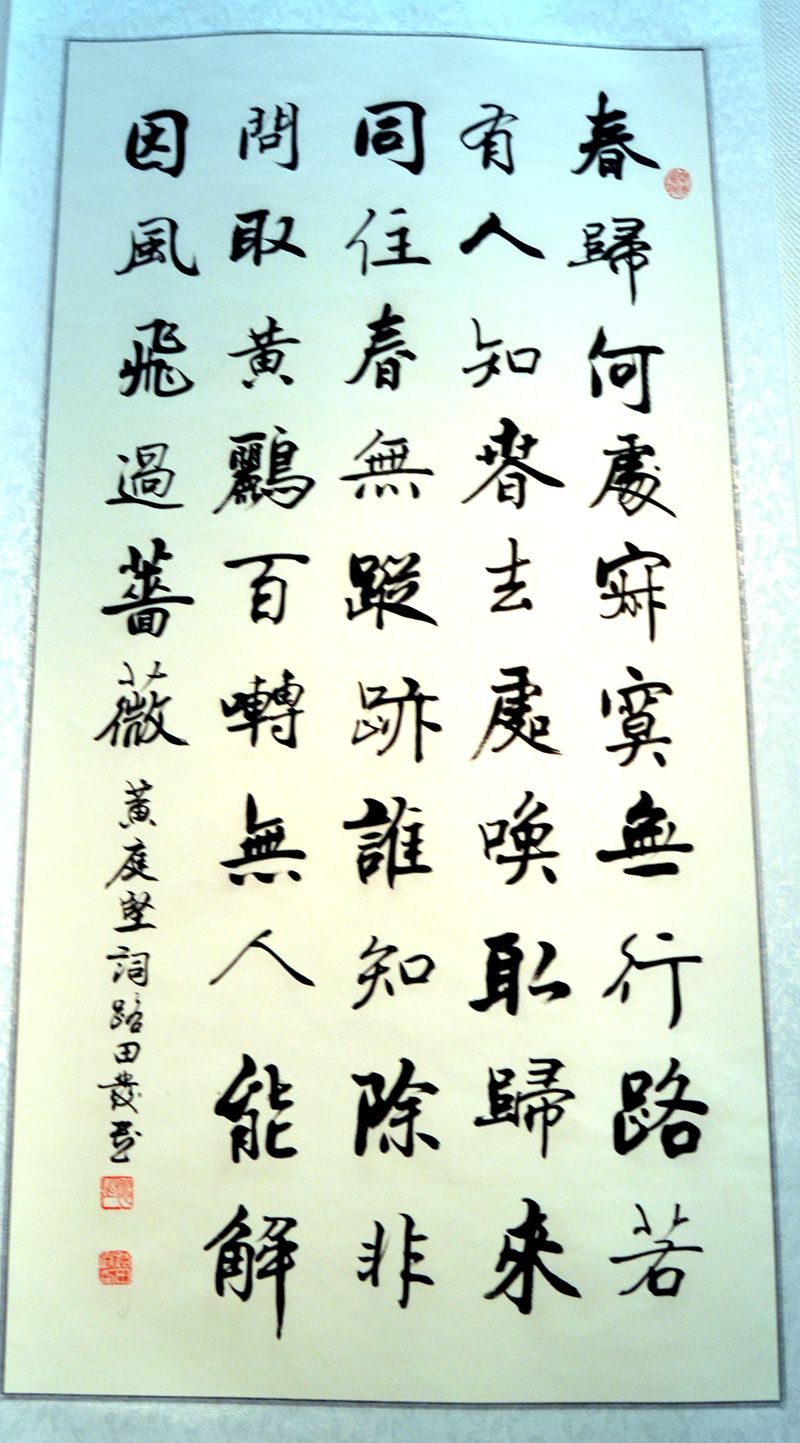 春歸何處寂寞無行路若
有人知春去處喚取歸來
同住春無蹤跡誰知除非
問取黃鸝百囀無人能解
因風飛過薔薇
黃庭堅詞路田發書